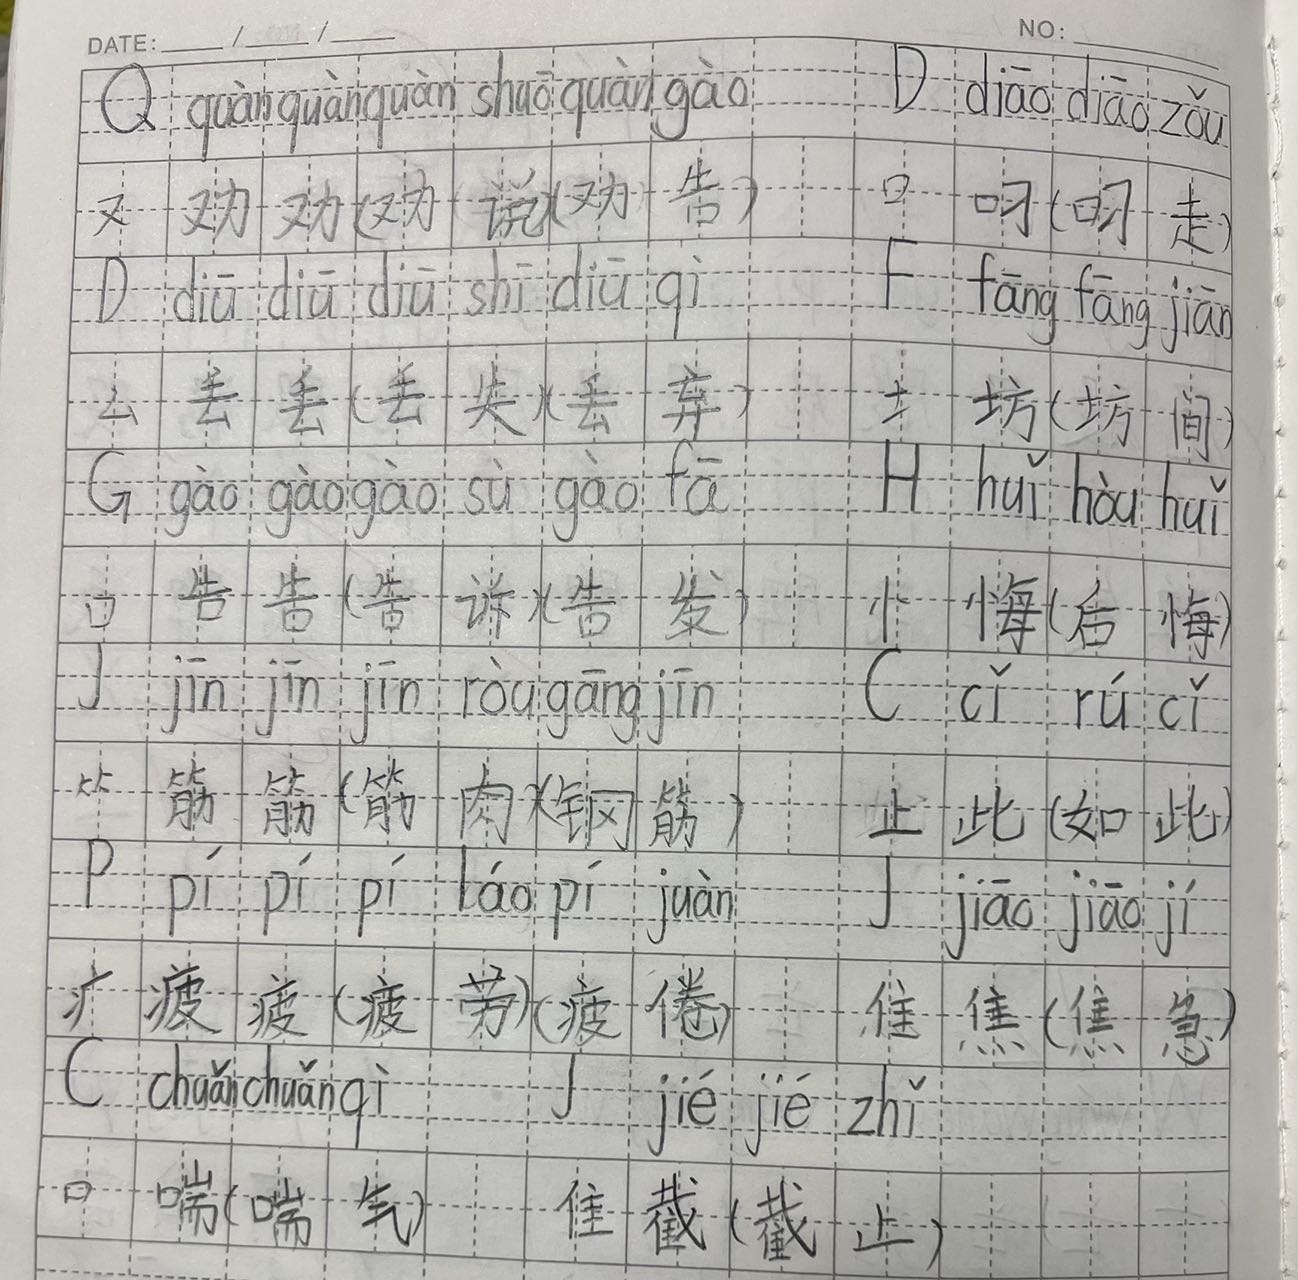 DATE: ____ / ____ / ____ NO: ____
Q quàn quàn quàn shuō quàn gào D diāo diāo zǒu
又 劝 劝 (劝 说) (劝 告) 口 叼 (叼 走)
D diū diū diū shī diū qì F fāng fāng jiān
厶 丢 丢 (丢 失) (丢 弃) 土 坊 (坊 间)
G gào gào gào sù gào fā H huǐ hòu huǐ
口 告 告 (告 诉) (告 发) 忄 悔 (后 悔)
J jīn jīn jīn ròu gāng jīn C cǐ rú cǐ
⺮ 筋 筋 (筋 肉) (钢 筋) 止 此 (如 此)
P pí pí pí láo pí juàn J jiāo jiāo jí
疒 疲 疲 (疲 劳) (疲 倦) 隹 焦 (焦 急)
C chuǎn chuǎn qì J jié jié zhǐ
口 喘 (喘 气) 隹 截 (截 止)